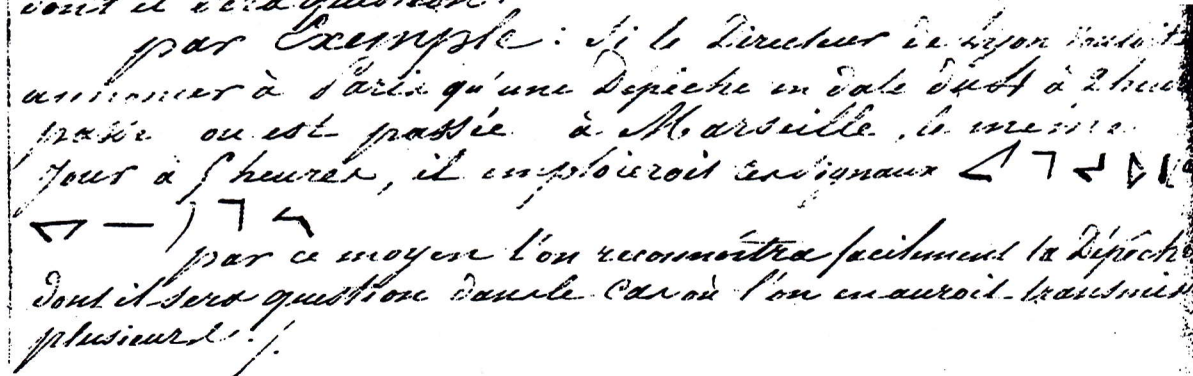 dont il sera question.
par Exemple: Si le Directeur de Lyon
annoncer à Paris qu'une Depêche en date du 4 à 2 heu
passée ou est passée à Marseille, le même
Jour à 5 heures, il emploieroit ces Signaux
par ce moyen l'on reconnoîtra facilement la Dépêch
dont il sera question dans le Cas où l'on en auroit transmis
plusieurs./.